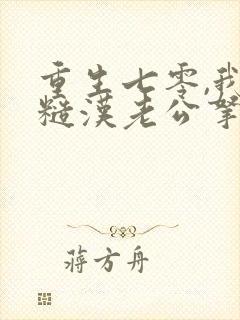 重生七零,我
糙漢老公掌
蔣方舟